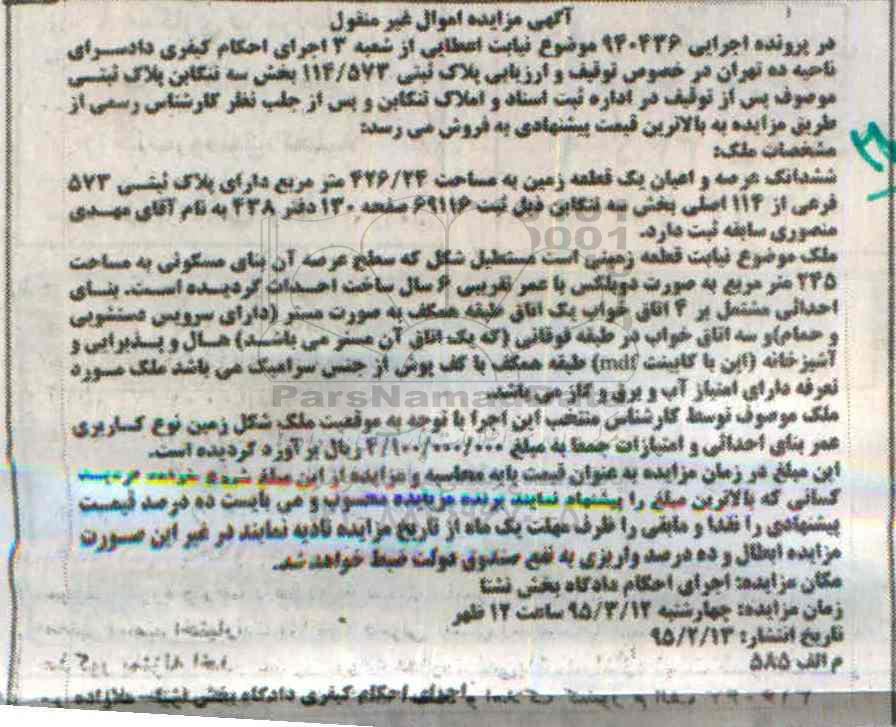 آگهی مزایده اموال غیر منقول
در پرونده اجرایی ۹۴۰۴۳۶ موضوع نیابت اعطایی از شعبه ۳ اجرای احکام کیفری دادسرای
ناحیه ده تهران در خصوص توقیف و ارزیابی پلاک ثبتی ۱۱۴/۵۷۳ بخش سه تنکابن پلاک ثبتی
موصوف پس از توقیف در اداره ثبت اسناد و املاک تنکابن و پس از جلب نظر کارشناس رسمی از
طریق مزایده به بالاترین قیمت پیشنهادی به فروش می رسد:
مشخصات ملک:
ششدانگ عرصه و اعیان یک قطعه زمین به مساحت ۴۲۶/۲۴ متر مربع دارای پلاک ثبتی ۵۷۳
فرعی از ۱۱۴ اصلی بخش سه تنکابن ذیل ثبت ۶۹۱۱۶ صفحه ۱۳۰ دفتر ۴۳۸ به نام آقای مهدی
منصوری سابقه ثبت دارد.
ملک موضوع نیابت قطعه زمینی است مستطیل شکل که سطح عرصه آن بنای مسکونی به مساحت
۲۴۵ متر مربع به صورت دوبلکس با عمر تقریبی ۶ سال ساخت احداث گردیده است. بنای
احداثی مشتمل بر ۴ اتاق خواب یک اتاق طبقه همکف به صورت مستر (دارای سرویس دستشویی
و حمام)و سه اتاق خواب در طبقه فوقانی (که یک اتاق آن مستر می باشد) هال و پذیرایی و
آشپزخانه (اپن با کابینت mdf) طبقه همکف با کف پوش از جنس سرامیک می باشد ملک مورد
تعرفه دارای امتیاز آب و برق و گاز می باشد.
ParsNama
ملک موصوف توسط کارشناس منتخب این اجرا با توجه به موقعیت ملک شکل زمین نوع کاربری
عمر بنای احداثی و امتیازات جمعا به مبلغ ۰۰۰/۰۰۰/۱۰۰/۴ ریال بر آورد گردیده است.
این مبلغ در زمان مزایده به عنوان قیمت پایه محاسبه و مزایده از این مبلغ شروع خواهد گردید
کسانی که بالاترین مبلغ را پیشنهاد نمایند برنده مزایده محسوب و می بایست ده درصد قیمت
پیشنهادی را نقدا و مابقی را ظرف مهلت یک ماه از تاریخ مزایده تادیه نمایند در غیر این صورت
مزایده ابطال و ده درصد واریزی به نفع صندوق دولت ضبط خواهد شد.
مکان مزایده: اجرای احکام دادگاه بخش نشتا
زمان مزایده: چهارشنبه ۹۵/۳/۱۲ ساعت ۱۲ ظهر
تاریخ انتشار: ۹۵/۲/۱۳
م الف ۵۸۵
اجرای احکام کیفری دادگاه بخش نشتا